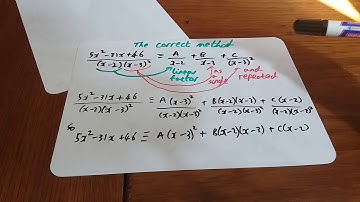 The correct method
5x²-31x+46/(x-2)(x-3)² ≡ A/x-2 + B/x-3 + C/(x-3)²
linear factor as single and repeated
5x²-31x+46/(x-2)(x-3)² ≡ A(x-3)²/(x-2)(x-3)² + B(x-2)(x-3)/(x-2)(x-3)² + C(x-2)/(x-2)(x-3)²
So
5x²-31x+46 ≡ A(x-3)² + B(x-2)(x-3) + C(x-2)